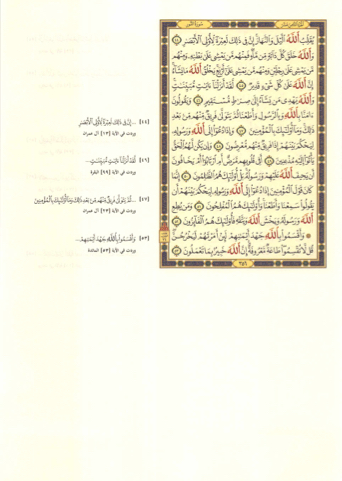 الجزء الثامن عشر
سورة النور
يُقَلِّبُ ٱللَّهُ ٱلَّيۡلَ وَٱلنَّهَارَۚ إِنَّ فِي ذَٰلِكَ لَعِبۡرَةٗ لِّأُوْلِي ٱلۡأَبۡصَٰرِ ٤٤
وَٱللَّهُ خَلَقَ كُلَّ دَآبَّةٖ مِّن مَّآءٖۖ فَمِنۡهُم مَّن يَمۡشِي عَلَىٰ بَطۡنِهِۦ وَمِنۡهُم
مَّن يَمۡشِي عَلَىٰ رِجۡلَيۡنِ وَمِنۡهُم مَّن يَمۡشِي عَلَىٰٓ أَرۡبَعٖۚ يَخۡلُقُ ٱللَّهُ مَا يَشَآءُۚ
إِنَّ ٱللَّهَ عَلَىٰ كُلِّ شَيۡءٖ قَدِيرٞ ٤٥ لَّقَدۡ أَنزَلۡنَآ ءَايَٰتٖ مُّبَيِّنَٰتٖۚ
وَٱللَّهُ يَهۡدِي مَن يَشَآءُ إِلَىٰ صِرَٰطٖ مُّسۡتَقِيمٖ ٤٦ وَيَقُولُونَ
ءَامَنَّا بِٱللَّهِ وَبِٱلرَّسُولِ وَأَطَعۡنَا ثُمَّ يَتَوَلَّىٰ فَرِيقٞ مِّنۡهُم مِّنۢ بَعۡدِ
ذَٰلِكَۚ وَمَآ أُوْلَٰٓئِكَ بِٱلۡمُؤۡمِنِينَ ٤٧ وَإِذَا دُعُوٓاْ إِلَى ٱللَّهِ وَرَسُولِهِۦ
لِيَحۡكُمَ بَيۡنَهُمۡ إِذَا فَرِيقٞ مِّنۡهُم مُّعۡرِضُونَ ٤٨ وَإِن يَكُن لَّهُمُ ٱلۡحَقُّ
يَأۡتُوٓاْ إِلَيۡهِ مُذۡعِنِينَ ٤٩ أَفِي قُلُوبِهِم مَّرَضٌ أَمِ ٱرۡتَابُوٓاْ أَمۡ يَخَافُونَ
أَن يَحِيفَ ٱللَّهُ عَلَيۡهِمۡ وَرَسُولُهُۥۚ بَلۡ أُوْلَٰٓئِكَ هُمُ ٱلظَّٰلِمُونَ ٥٠ إِنَّمَا
كَانَ قَوۡلَ ٱلۡمُؤۡمِنِينَ إِذَا دُعُوٓاْ إِلَى ٱللَّهِ وَرَسُولِهِۦ لِيَحۡكُمَ بَيۡنَهُمۡ أَن
يَقُولُواْ سَمِعۡنَا وَأَطَعۡنَاۚ وَأُوْلَٰٓئِكَ هُمُ ٱلۡمُفۡلِحُونَ ٥١ وَمَن يُطِعِ
ٱللَّهَ وَرَسُولَهُۥ وَيَخۡشَ ٱللَّهَ وَيَتَّقۡهِ فَأُوْلَٰٓئِكَ هُمُ ٱلۡفَآئِزُونَ ٥٢
۞ وَأَقۡسَمُواْ بِٱللَّهِ جَهۡدَ أَيۡمَٰنِهِمۡ لَئِنۡ أَمَرۡتَهُمۡ لَيَخۡرُجُنَّۖ
قُل لَّا تُقۡسِمُواْۖ طَاعَةٞ مَّعۡرُوفَةٌۚ إِنَّ ٱللَّهَ خَبِيرُۢ بِمَا تَعۡمَلُونَ ٥٣
٣٥٦
[٤٤] ... إِنَّ فِي ذَٰلِكَ لَعِبۡرَةٗ لِّأُوْلِي ٱلۡأَبۡصَٰرِ
وردت في الآية [١٣] آل عمران
[٤٦] لَّقَدۡ أَنزَلۡنَآ ءَايَٰتٖ مُّبَيِّنَٰتٖ...
وردت في الآية [٩٩] البقرة
[٤٧] ...ثُمَّ يَتَوَلَّىٰ فَرِيقٞ مِّنۡهُم مِّنۢ بَعۡدِ ذَٰلِكَ وَمَآ أُوْلَٰٓئِكَ بِٱلۡمُؤۡمِنِينَ
وردت في الآية [٢٣] آل عمران
[٥٣] وَأَقۡسَمُواْ بِٱللَّهِ جَهۡدَ أَيۡمَٰنِهِمۡ...
وردت في الآية [٥٣] المائدة